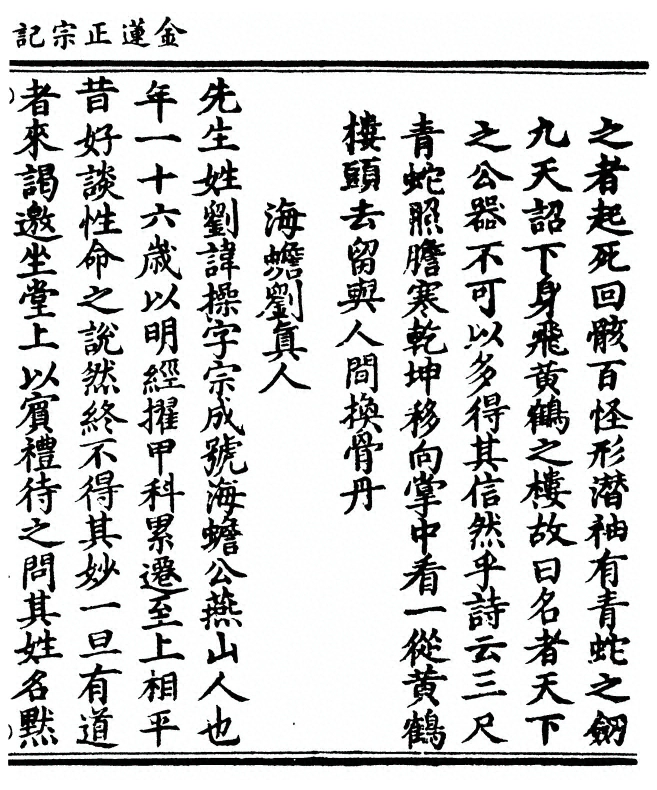 金蓮正宗記
之者起死回骸百怪形潛袖有青蛇之劒
九天詔下身飛黄鶴之樓故曰名者天下
之公器不可以多得其信然乎詩云三尺
青蛇照膽寒乾坤移向掌中看一從黄鶴
樓頭去留與人間換骨丹
海蟾劉真人
先生姓劉諱操字宗成號海蟾公燕山人也
年一十六歲以明經擢甲科累遷至上相平
昔好談性命之說然終不得其妙一旦有道
者來謁邀坐堂上以賓禮待之問其姓名黙